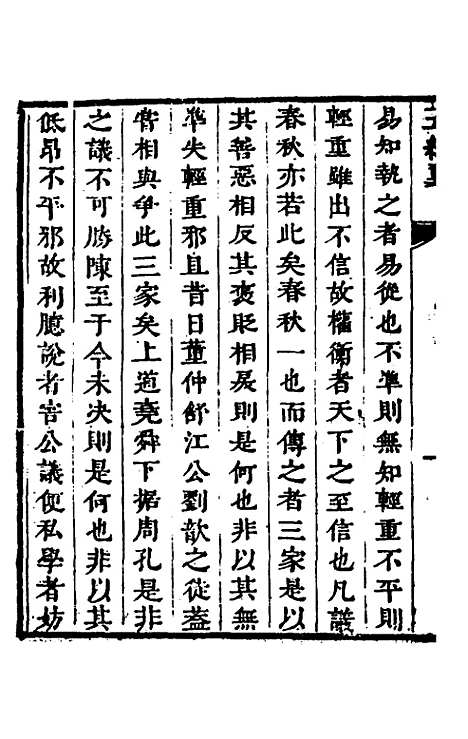 易知執之者易從也不準則無知輕重不平則
輕重雖出不信故權衡者天下之至信也凡議
春秋亦若此矣春秋一也而傳之者三家是以
其善惡相反其褒貶相戾則是何也非以其無
準失輕重邪且昔日董仲舒江公劉歆之徒蓋
嘗相與爭此三家矣上道堯舜下据周孔是非
之議不可勝陳至于今未决則是何也非以其
低昂不平邪故利臆說者害公議便私學者妨